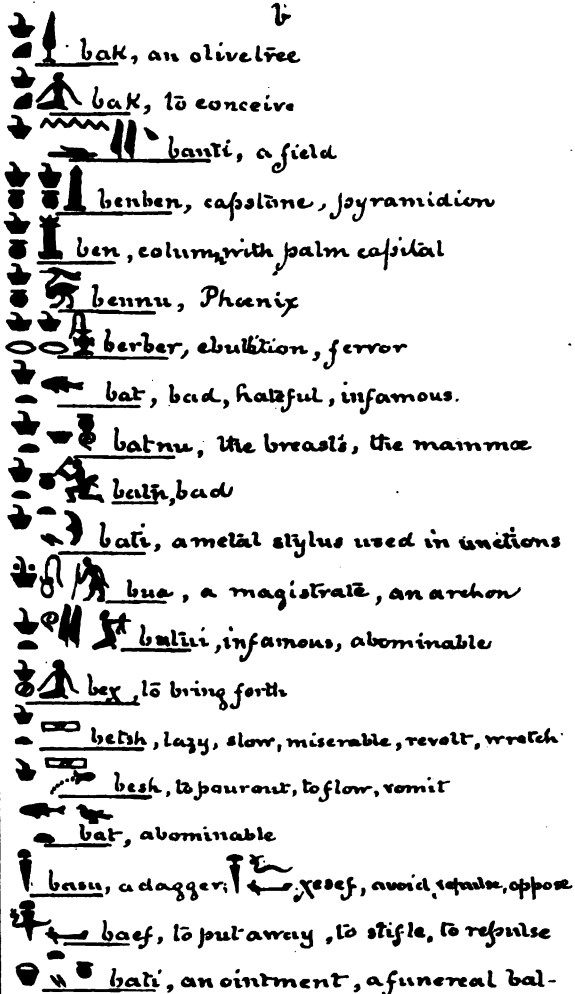 b
bak, an olivetree
bak, to conceive
banti, a field
benben, capstone, pyramidion
ben, column with palm capital
bennu, Phœnix
berber, ebullition, fervor
bat, bad, hateful, infamous.
batnu, the breasts, the mammœ
bad
bati, a metal stylus used in unctions
bua, a magistrate, an archon
infamous, abominable
bex, to bring forth
betsh, lazy, slow, miserable, revolt, wretch
besh, to pour out, to flow, vomit
bat, abominable
basu, a dagger; xesef, avoid, repulse, oppose
baef, to put away, to stifle, to repulse
bati, an ointment, a funereal bal-